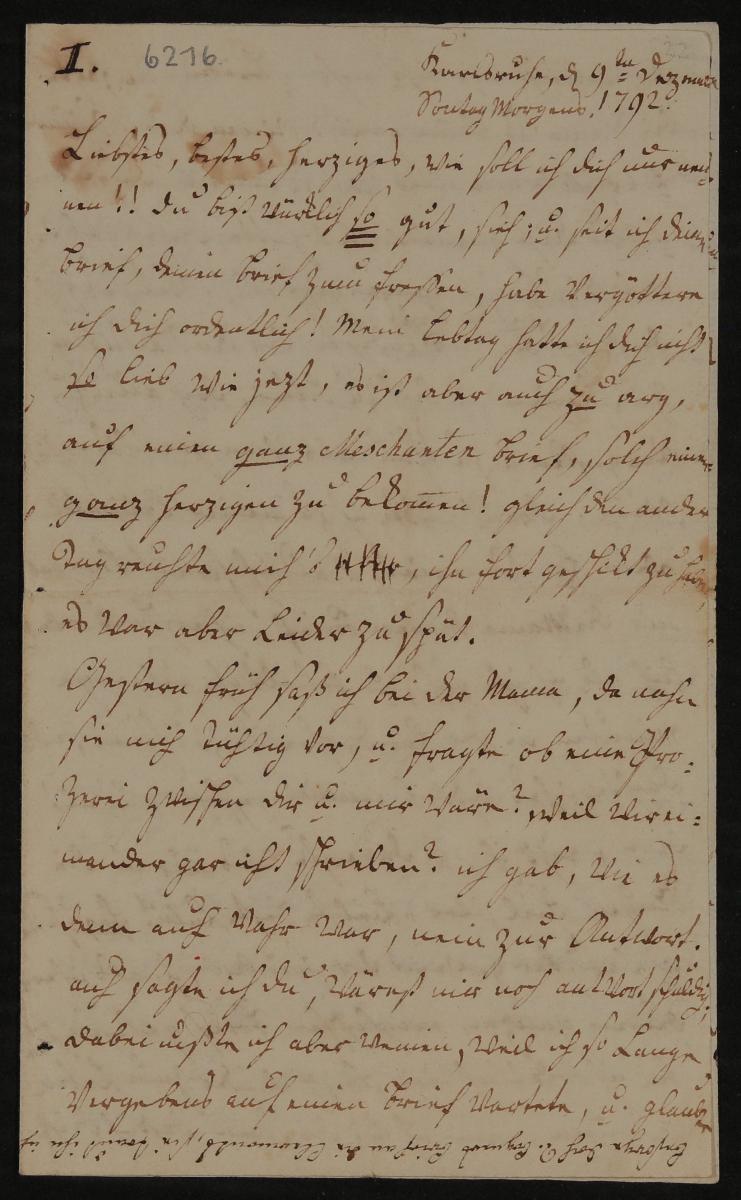 I. 6216.
Karlsruhe, d 9tn Dezember
Sontag Morgens. 1792.
Liebstes, bestes, herziges, wie soll ich dich nur nen-
nen!! du bist würklich so gut, sieh, u. seit ich deinen
Brief, deinen Brief zum fressen, habe vergöttere
ich dich ordentlich! Mein Lebtag hatte ich dich nicht
so lieb wie jezt, es ist aber auch zu arg,
auf einen ganz Meschanten Brief, solch einen
ganz herzigen zu bekommen! gleich den andern
Tag reuhte mich's, ihn fort geschickt zu haben,
es war aber Leider zu spät.
Gestern früh saß ich bei der Mama, da nahm
sie mich tüchtig vor, u. fragte ob eine Pro-
zerei zwischen dir u. mir wäre? weil wir ei-
nander gar nicht schrieben? ich gab, wie es
denn auch wahr war, nein zur Antwort.
auch sagte ich du wärest mir noch antwort schuldig,
dabei mußte ich aber weinen, weil ich so Lange
vergebens auf einen Brief wartete, u. glaubte